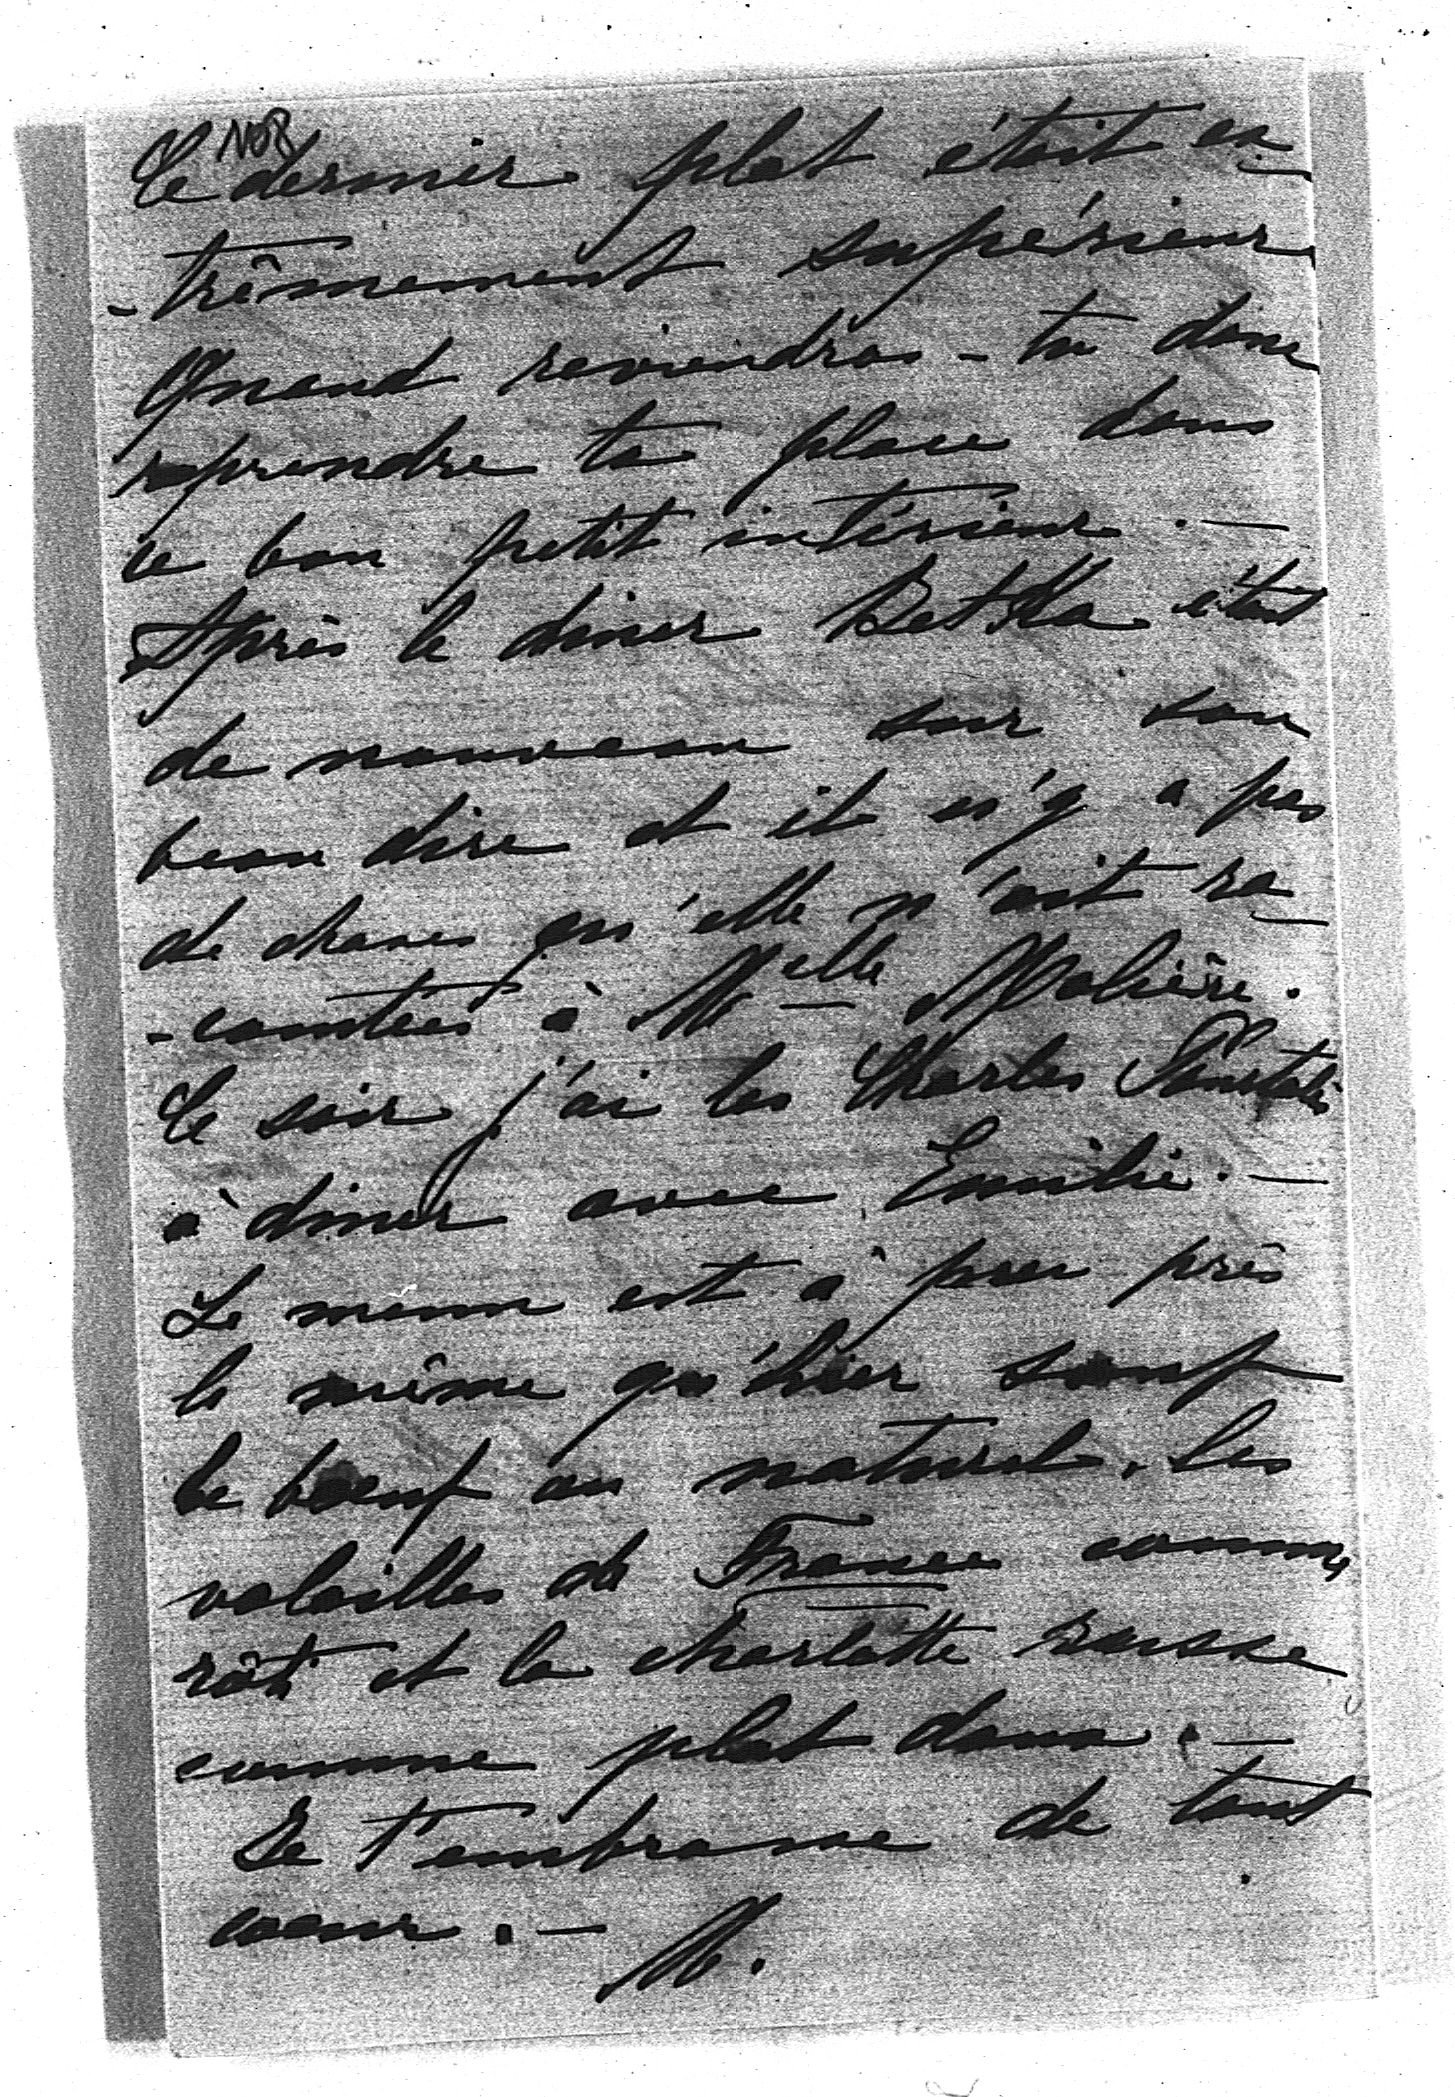 Ce dernier plat était ex
-trêmement supérieur
Quand reviendras-tu donc
reprendre ta place dans
ce bon petit intérieur. —
Après le diner Betska était
de nouveau sur son
beau dire et il n'y a pas
de choses qu'elle n'ait ra
-contées à Melle Molière.
Ce soir j'ai les Charles Pourtalès
à diner avec Emilie. —
Le menu est à peu près
le même qu'hier sauf
le bœuf au naturel, les
volailles de France comme
rôti et la charlotte russe
comme plat doux. —
Je t'embrasse de tout
cœur. — M.